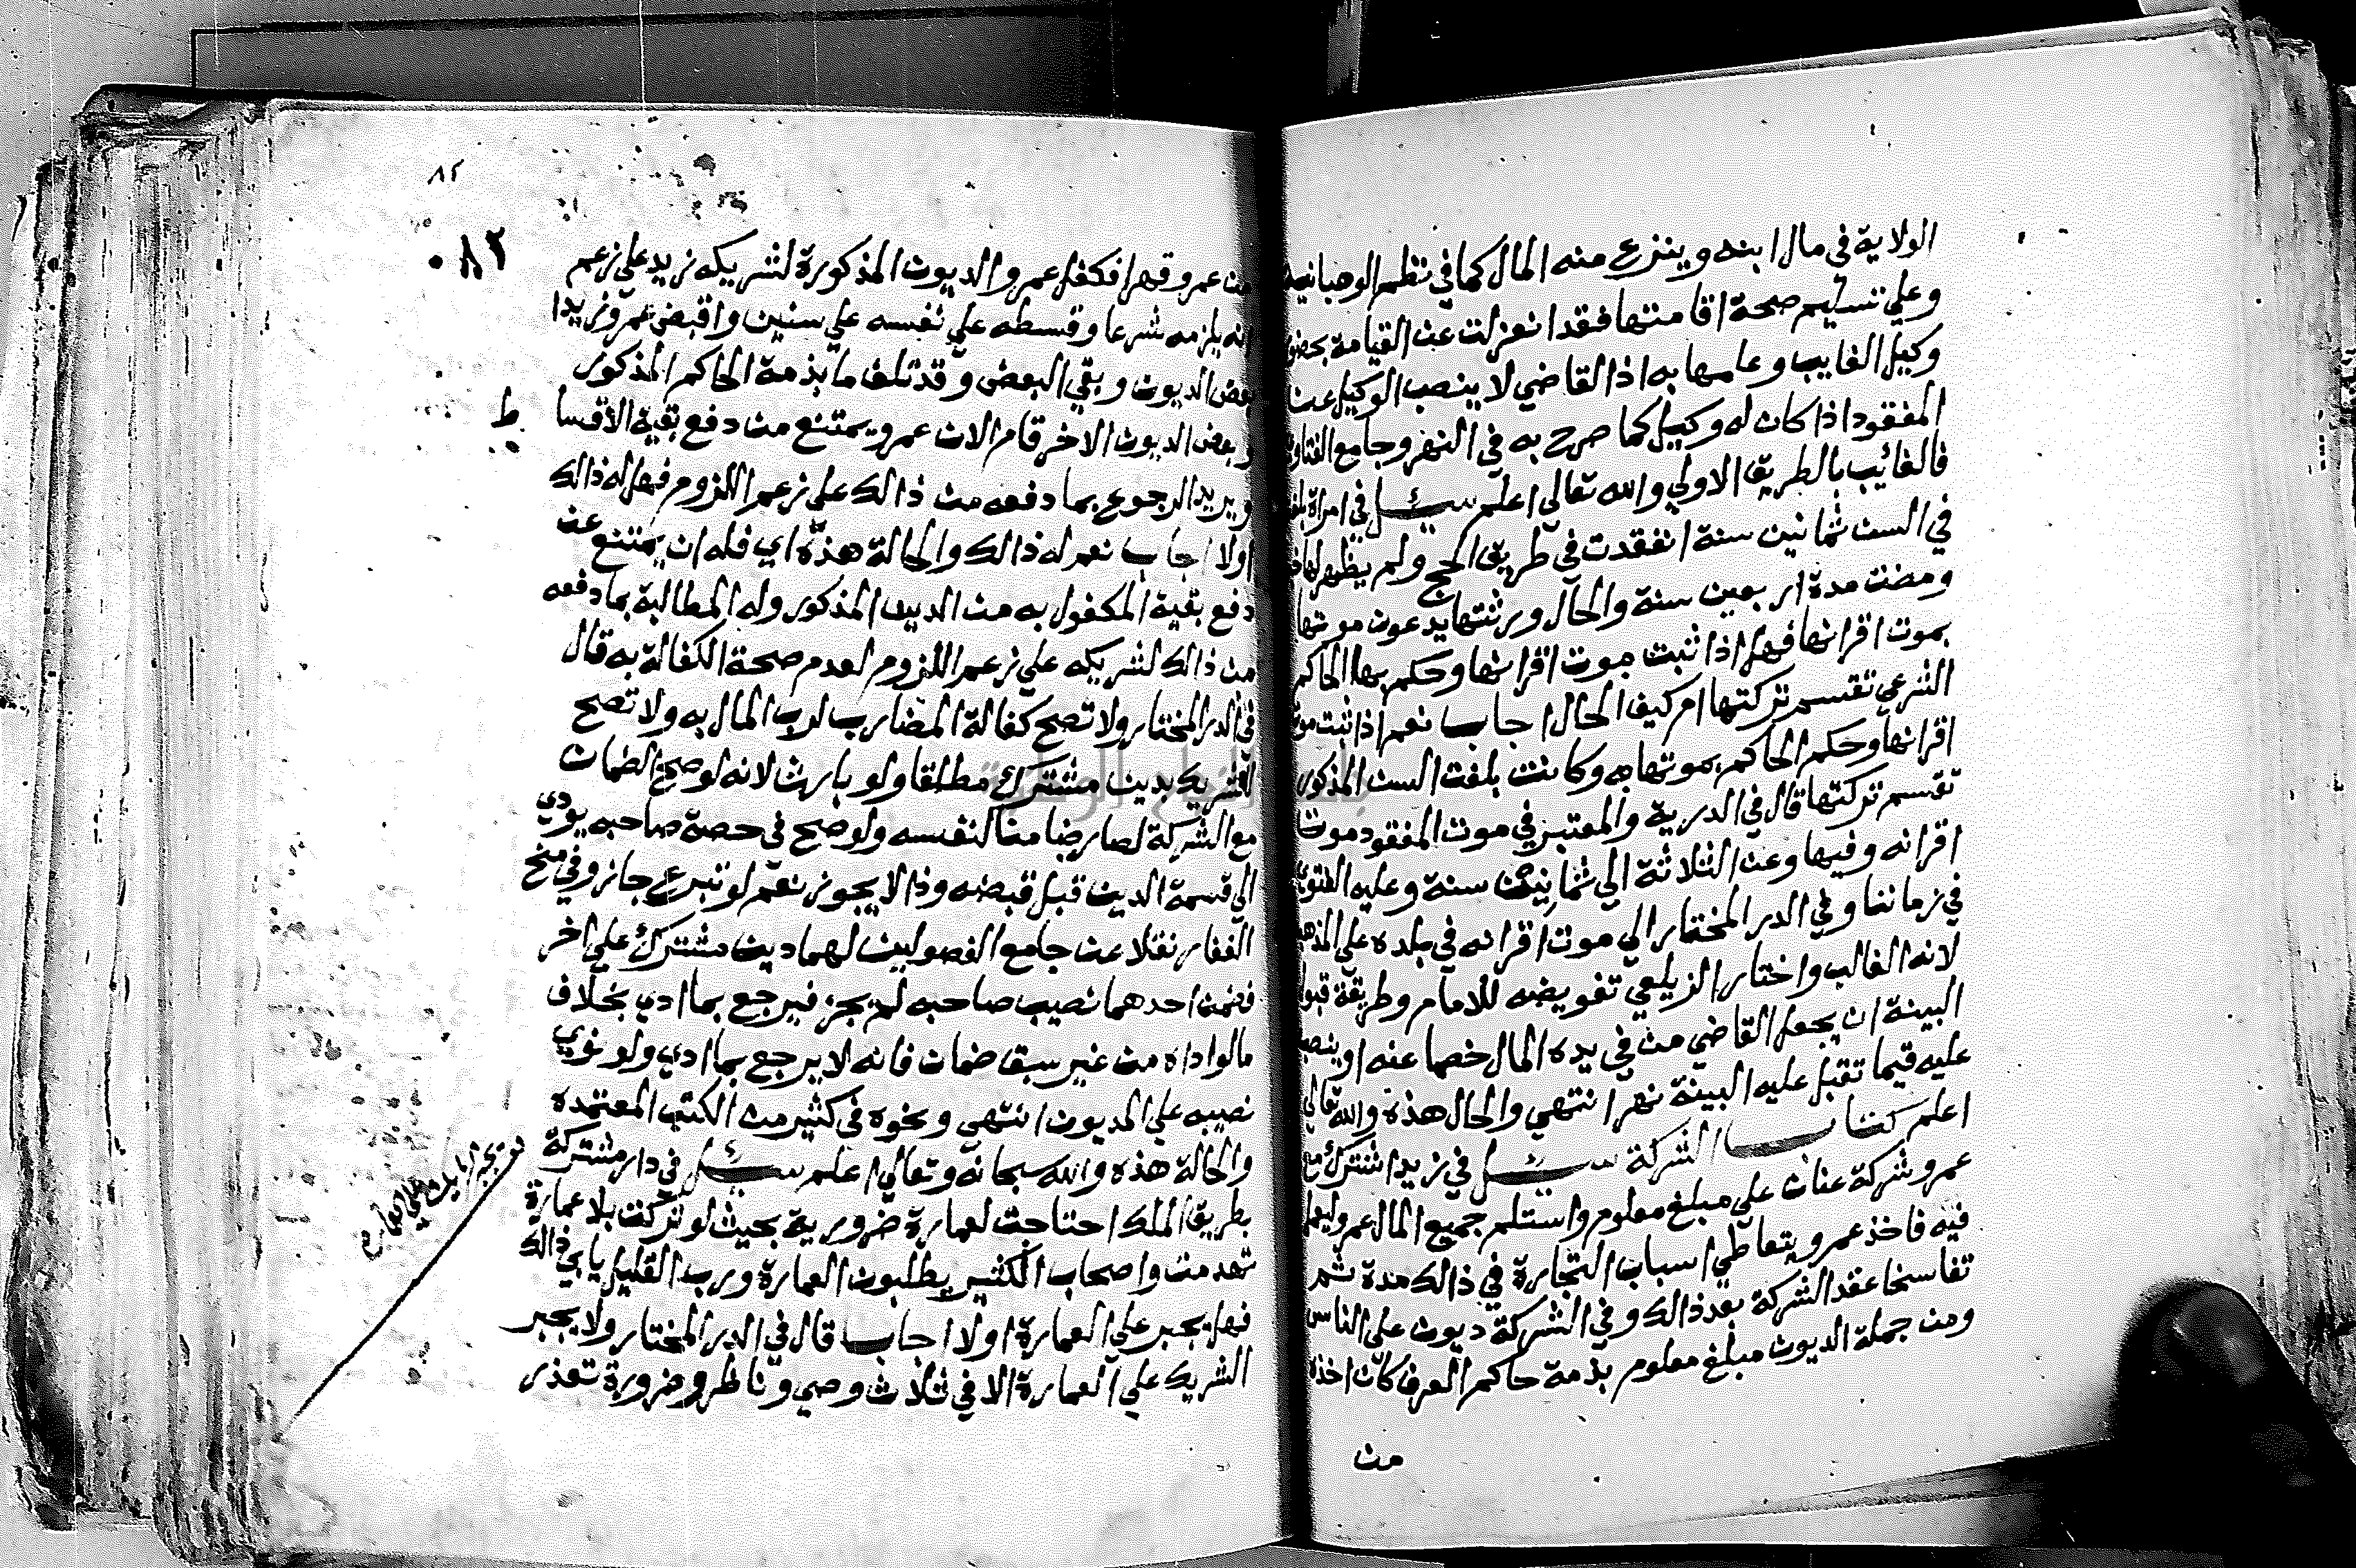 الولاية في مال ابنه وينزع منه المال كما في نظم الوهبانية
وعلي تسليم صحة اقامتها فقد انعزلت عن القيامة بحضور
وكيل الغايب وعلمها به اذ القاضي لا ينصب الوكيل عن
المفقود اذا كان له وكيل كما صرح به في النهر وجامع الفتاوي
فالغائب بالطريق الاولي والله تعالي اعلم سئل في امراة بلغت
في السن ثمانين سنة انفقدت في طريق الحج ولم يظهر لها
ومضت مدة اربعين سنة والحال ورثتها يدعون موتها
بموت اقرانها فهل اذا ثبت موت اقرانها وحكم بها الحاكم
الشرعي تقسم تركتها ام كيف الحال اجاب نعم اذا ثبت موت
اقرانها وحكم الحاكم بموتها به وكانت بلغت السن المذكور
تقسم تركتها قال في الدرية والمعتبر في موت المفقود موت
اقرانه وفيها وعن الثلاثة الي ثمانين سنة وعليه الفتوي
في زماننا وفي الدر المختار الي موت اقرانه في بلده علي المذهب
لانه الغالب واختار الزيلعي تفويضه للامام وطريقة قبول
البينة ان يجعل القاضي من في يده المال خصما عنه او ينصب
عليه قيما تقبل عليه البينة نهر انتهي والحال هذه والله تعالي
اعلم كتاب الشركة سئل في زيد اشترك مع
عمرو شركة عنان علي مبلغ معلوم واستلم جميع المال عمرو ليعمل
فيه فاخذ عمرو يتعاطي اسباب التجارة في ذالك مدة ثم
تفاسخا عقد الشركة بعد ذالك وفي الشركة ديون علي الناس
ومن جملة الديون مبلغ معلوم بذمة حاكم العرف كان اخذه
من
٨٢
٨٢
من عمرو قهرا فكفل عمرو الديون المذكورة لشريكه زيد علي زعم
انه يلزمه شرعا وقسطه علي نفسه علي سنين واقبض عمرو زيدا
بعض الديون وبقي البعض وقد تلف ما بذمة الحاكم المذكور
وبعض الديون الاخر قام الان عمرو يمتنع من دفع بقية الاقسا
ط
ويريد الرجوع بما دفعه من ذالك علي زعم اللزوم فهل له ذالك
اولا اجاب نعم له ذالك والحالة هذه اي فله ان يمتنع عن
دفع بقية المكفول به من الدين المذكور وله المطالبة بما دفعه
من ذالك لشريكه علي زعم اللزوم لعدم صحة الكفالة به قال
في الدر المختار ولا تصح كفالة المضارب لرب المال به ولا تصح
للشريك بدين مشترك مطلقا ولو بارث لانه لو صح الضمان
مع الشركة لصار ضامنا لنفسه ولو صح في حصة صاحبه يودي
الي قسمة الدين قبل قبضه وذا لا يجوز نعم لو تبرع جاز وفي منح
الغفار نقلا عن جامع الفصولين لهما دين مشترك علي اخر
فضمن احدهما نصيب صاحبه لم يجز فيرجع بما ادي بخلاف
مالو اداه من غير سبق ضمان فانه لا يرجع بما ادي ولو نوي
نصيبه علي المديون انتهي ونحوه في كثير من الكتب المعتمده
والحالة هذه والله سبحانه وتعالي اعلم سئل في دار مشتركة
بطريق الملك احتاجت لعمارة ضرورية بحيث لو تركت بلا عمارة
تهدمت واصحاب الكثير يطلبون العمارة ورب القليل يابي ذالك
فهل يجبر علي العمارة اولا اجاب قال في الدر المختار ولا يجبر
الشريك علي العمارة الا في ثلاث وصي وناظر وضرورة تعذر
علي العمارة